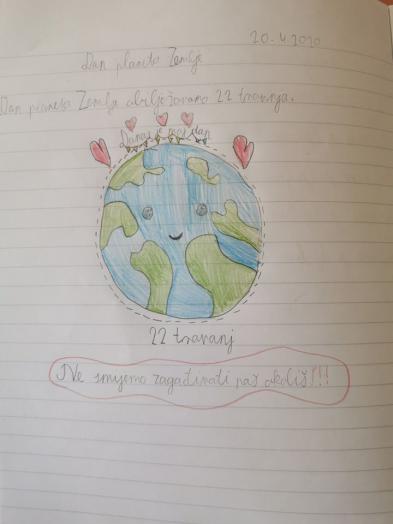 20.4.2020
Dan planeta Zemlje
Dan planeta Zemlje obilježavamo 22 travnja.
Danas je moj dan
22 travanj
Ne smijemo zagađivati naš okoliš!!!